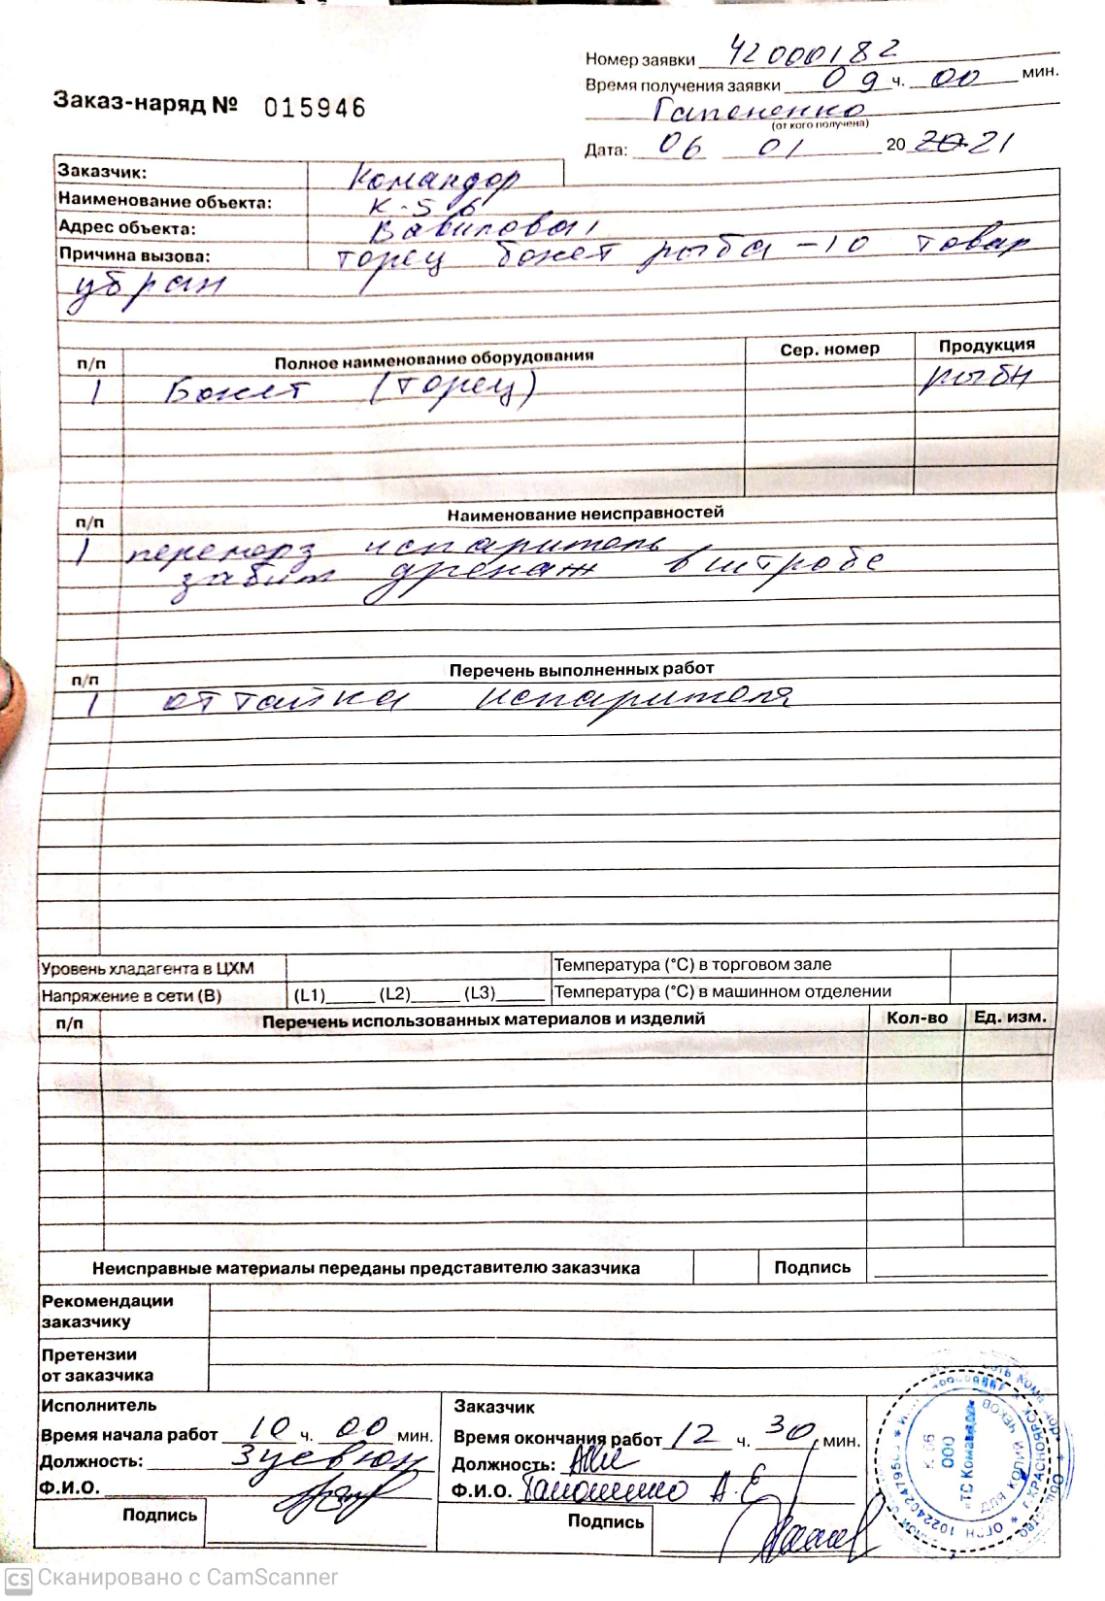 Номер заявки 42000182
Время получения заявки 09 ч. 00 мин.
Заказ-наряд № 015946
Гапоненко
(от кого получена)
Дата: 06 01 20 20 21
Заказчик: Командор
Наименование объекта: К-56
Адрес объекта: Вавилова 1
Причина вызова: торец бонет рыба -10 товар
убран
п/п Полное наименование оборудования Сер. номер Продукция
1 Бонет (торец) рыбн
п/п Наименование неисправностей
1 перемерз испаритель
забит дренаж в штробе
п/п Перечень выполненных работ
1 оттайка испарителя
Уровень хладагента в ЦХМ Температура (°C) в торговом зале
Напряжение в сети (В) (L1)_____ (L2)_____ (L3)_____ Температура (°C) в машинном отделении
п/п Перечень использованных материалов и изделий Кол-во Ед. изм.
Неисправные материалы переданы представителю заказчика Подпись
Рекомендации
заказчику
Претензии
от заказчика
Исполнитель Заказчик
Время начала работ 10 ч. 00 мин. Время окончания работ 12 ч. 30 мин.
Должность: Должность:
Ф.И.О. Ф.И.О. Гапоненко А.Е
Подпись Подпись
К-56
ООО
«ТС Командор»
ДЛЯ КОПИЙ ЧЕКОВ
Г. КРАСНОЯРСК
CS Сканировано с CamScanner